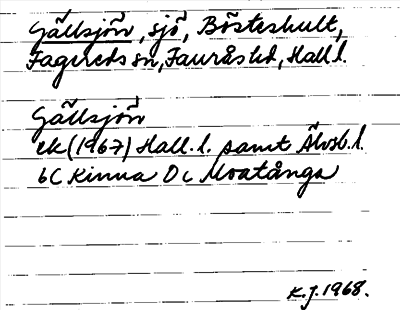 Gällsjön, sjö, Bösteshult,
Fagereds sn, Faurås hd, Hall l.
Gällsjön
ek (1967) Hall. l. samt Älvsb. l.
6C Kinna 0c
K.J. 1968.